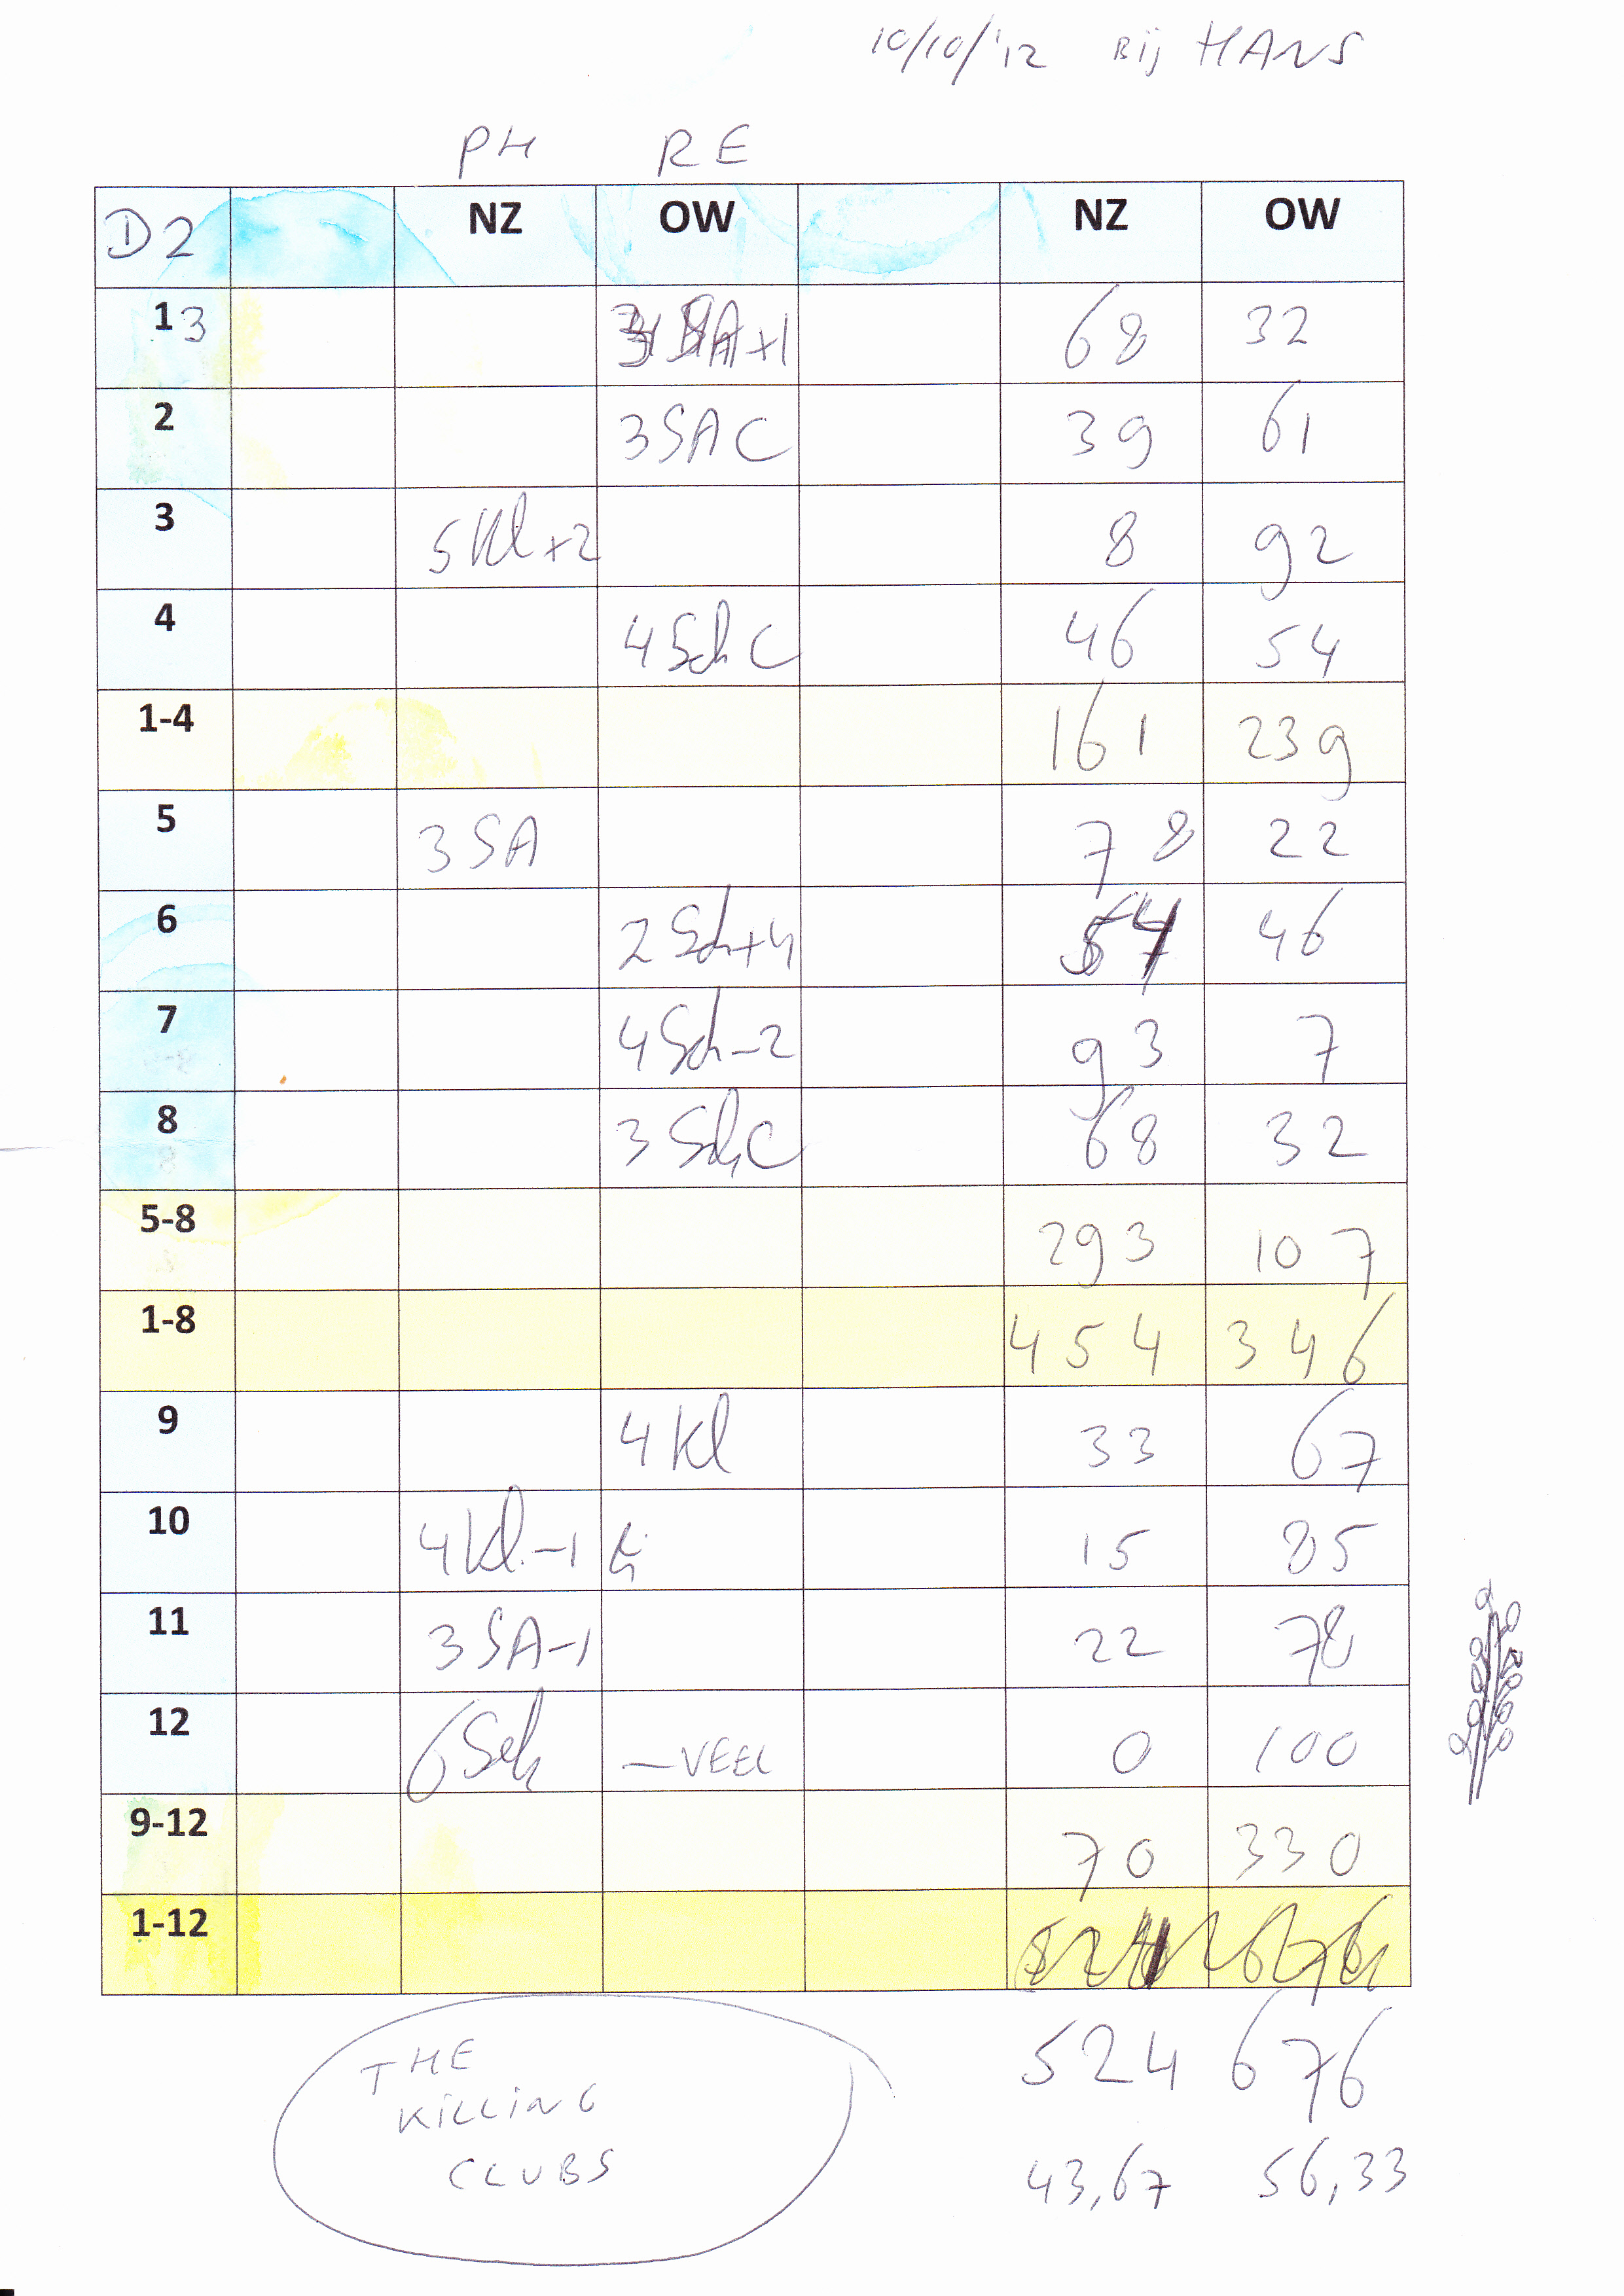 10/10/'12 Bij HANS
PH RE
D2 NZ OW NZ OW
1 3 3 SA+1 68 32
2 3SAC 39 61
3 5Kl+2 8 92
4 4SchC 46 54
1-4 161 239
5 3SA 78 22
6 2Sch+4 54 46
7 4Sch-2 93 7
8 3SchC 68 32
5-8 293 107
1-8 454 346
9 4Kl 33 67
10 4Kl-1 15 85
11 3SA-1 22 78
12 6Sch -VEEL 0 100
9-12 70 330
1-12
524 676
THE
KILLING
CLUBS
43,67 56,33